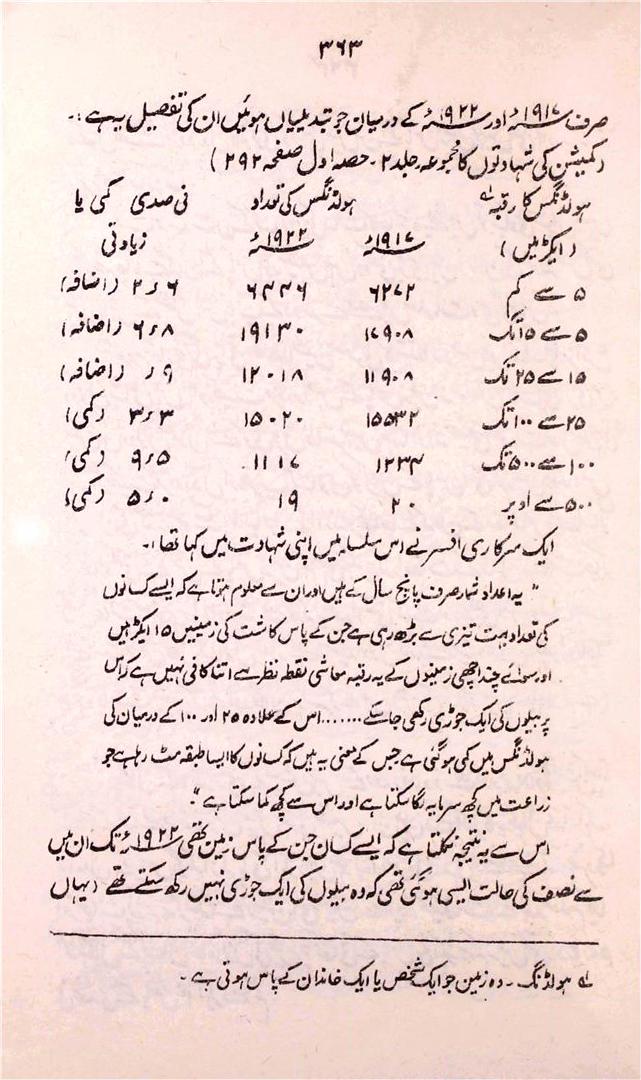 ۳۶۳
صرف ۱۹۱۷ء اور ۱۹۲۲ء کے درمیان جو تبدیلیاں ہوئیں ان کی تفصیل یہ ہے:۔
(کمیشن کی شہادتوں کا مجموعہ جلد ۲۔ حصہ اول صفحہ ۲۹۲)
ہولڈنگس کا رقبہ لے ہولڈنگس کی تعداد فی صدی کمی یا
(ایکڑ میں) ۱۹۱۷ء ۱۹۲۲ء زیادتی
۵ سے کم ۶۲۷۲ ۶۴۴۶ ۲٫۶ (اضافہ)
۵ سے ۱۵ تک ۱۷۹۰۸ ۱۹۱۳۰ ۶٫۸ (اضافہ)
۱۵ سے ۲۵ تک ۱۱۹۰۸ ۱۲۰۱۸ ٫۹ (اضافہ)
۲۵ سے ۱۰۰ تک ۱۵۵۳۲ ۱۵۰۲۰ ۳٫۳ (کمی)
۱۰۰ سے ۵۰۰ تک ۱۲۳۴ ۱۱۱۷ ۹٫۵ (کمی)
۵۰۰ سے اوپر ۲۰ ۱۹ ۵٫۰ (کمی)
ایک سرکاری افسر نے اس سلسلہ میں اپنی شہادت میں کہا تھا:۔
"یہ اعداد شمار صرف پانچ سال کے ہیں اور ان سے معلوم ہوتا ہے کہ ایسے کسانوں
کی تعداد بہت تیزی سے بڑھ رہی ہے جن کے پاس کاشت کی زمینیں ۱۵ ایکڑ ہیں
اور سوائے چند اچھی زمینوں کے یہ رقبہ معاشی نقطہ نظر سے اتنا کافی نہیں ہے کہ اس
پر بیلوں کی ایک جوڑی رکھی جا سکے ...... اس کے علاوہ ۲۵ اور ۱۰۰ کے درمیان کی
ہولڈنگس میں کمی ہو گئی ہے جس کے معنی یہ ہیں کہ کسانوں کا ایسا طبقہ مٹ رہا ہے جو
زراعت میں کچھ سرمایہ لگا سکتا ہے اور اس سے کچھ کما سکتا ہے"۔
اس سے یہ نتیجہ نکلتا ہے کہ ایسے کسان جن کے پاس زمین تھی ۱۹۲۲ء تک ان میں
سے نصف کی حالت ایسی ہو گئی تھی کہ وہ بیلوں کی ایک جوڑی نہیں رکھ سکتے تھے (یہاں
لے ہولڈنگ۔ وہ زمین جو ایک شخص یا ایک خاندان کے پاس ہوتی ہے۔